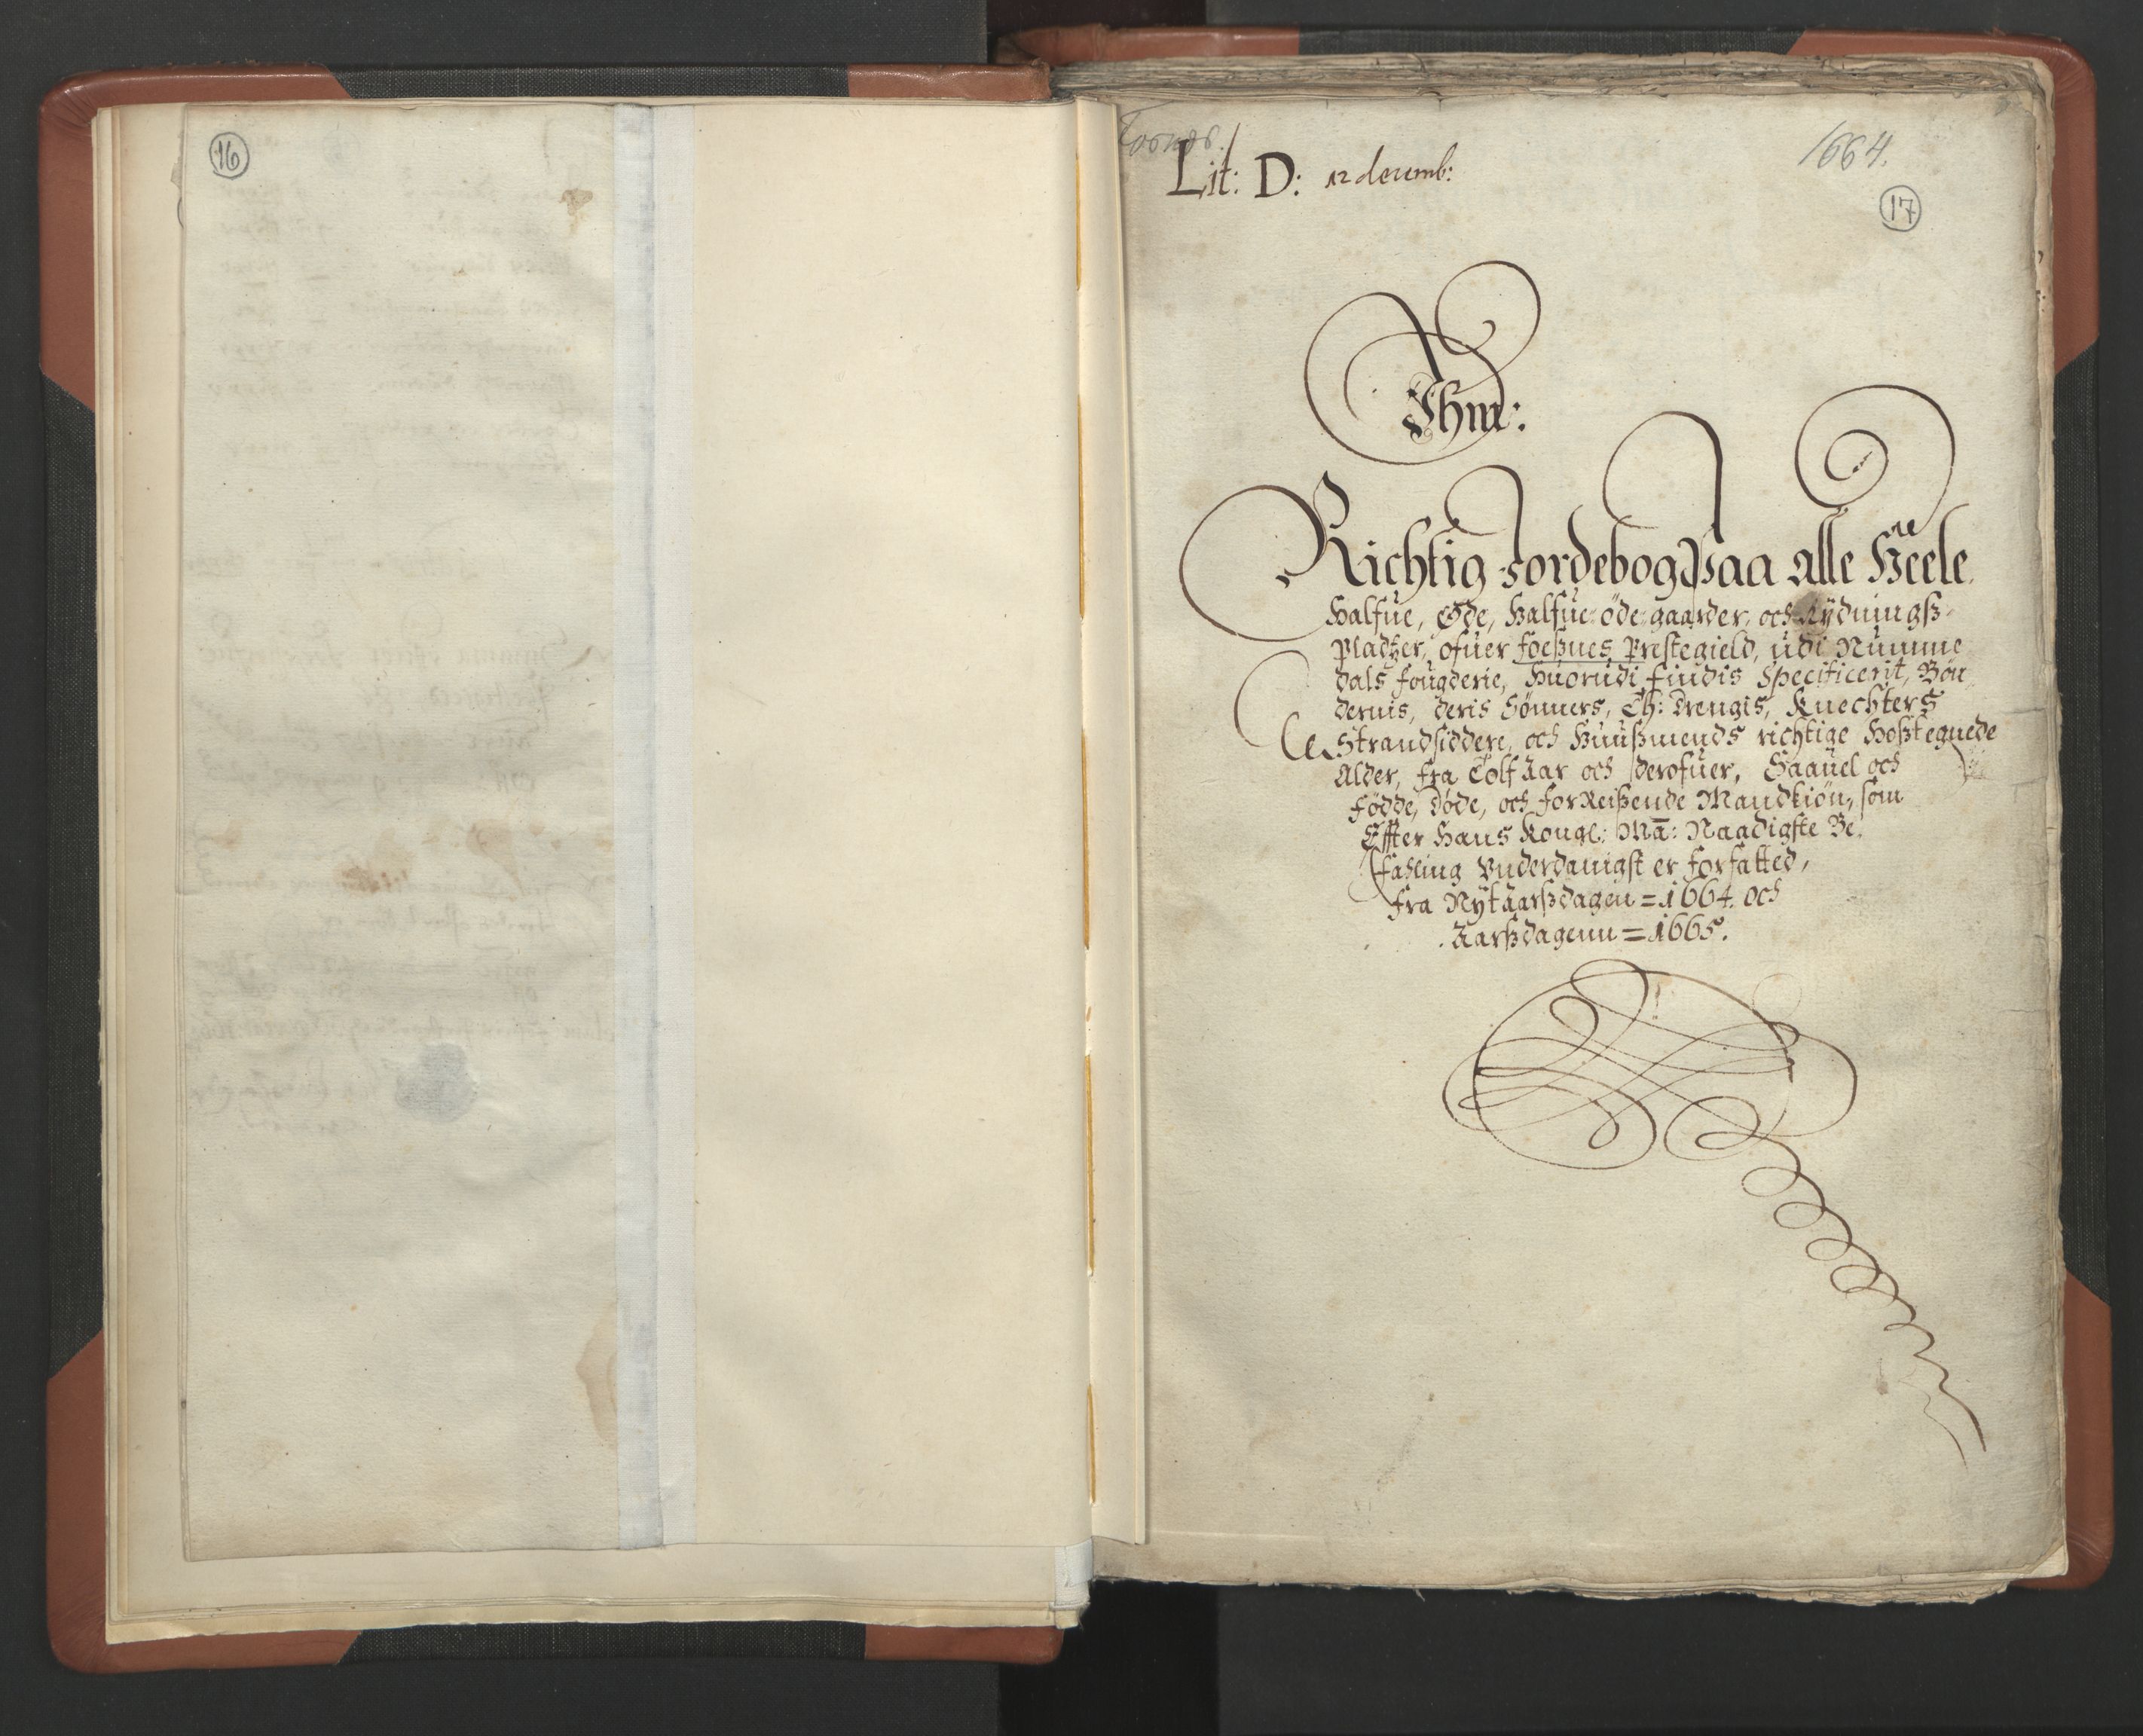 16
Fosnæs.
Lit: D: 12 decemb:
1664.
17
Ihm:
Richtig Jordebog Paa alle Heele
Halfue, Øde, Halfue-öde-gaarder, och Rÿdningß-
pladtzer, ofuer Foeßnes Prestegield, udi Numme
dals fougderie, Huorudi findis Specificerit, Bön
dernis, deris Sönners, Th: Drengis, Knechters
Strandsiddere, och Huußmends richtige Hoßtegnede
Alder, fra Tolf Aar och derofuer, Saauel och
Födde, Döde, och forReißende Mandkiön, som
Effter Hans Kongl: Maÿ: Naadigste Be,
fahling Vnderdanigst er forfatted,
fra Nÿtaarßdagen = 1664. och
Aarßdagenn = 1665.